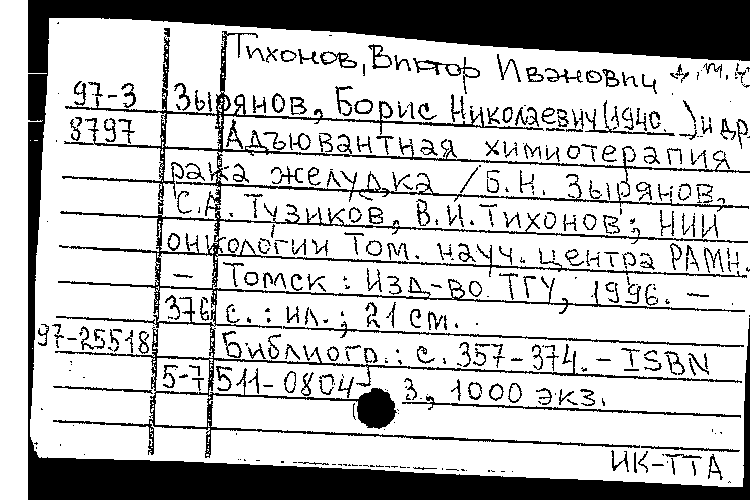 Тихонов, Виктор Иванович
97-3 Зырянов, Борис Николаевич (1940 ) и др
8797 Адъювантная химиотерапия
рака желудка / Б.Н. Зырянов,
С.А. Тузиков, В.И. Тихонов; НИИ
онкологии Том. науч. центра РАМН.
— Томск : Изд-во ТГУ, 1996. —
376 с. : ил. ; 21 см.
97-25518 Библиогр.: с. 357-374. – ISBN
5-7511-0804- 3, 1000 экз.
ИК-ТТА